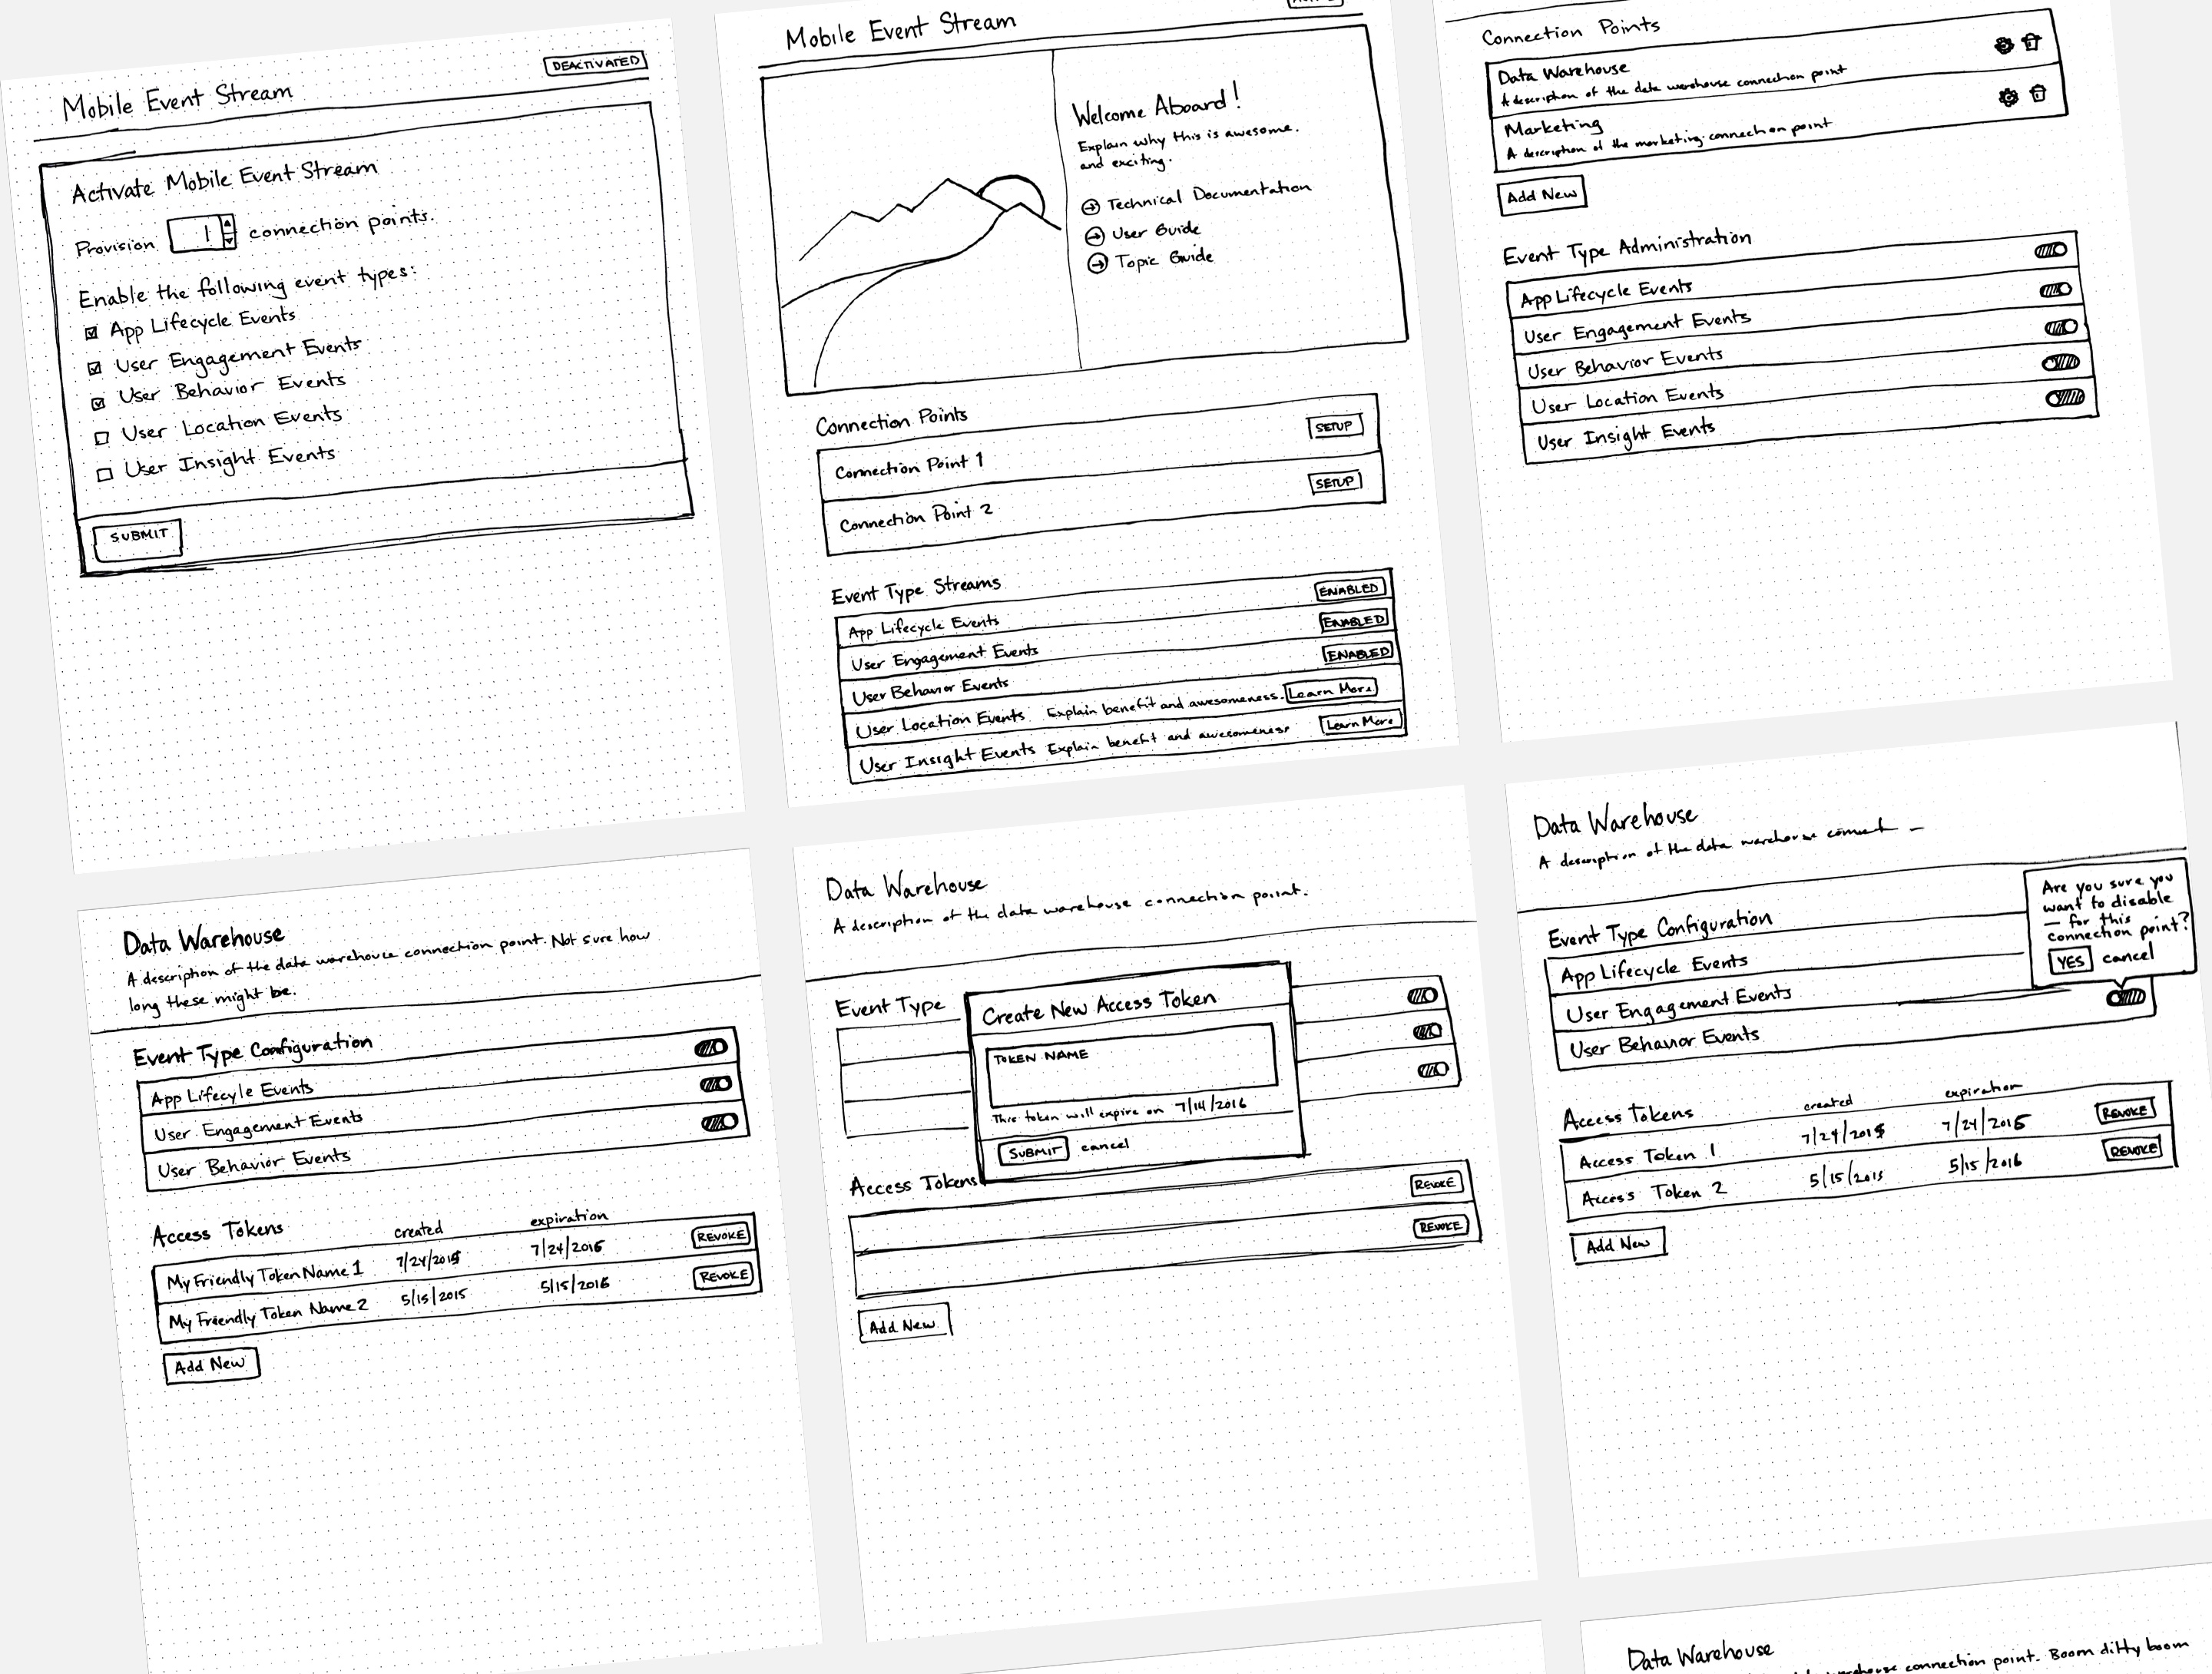 Mobile Event Stream
DEACTIVATED
Activate Mobile Event Stream
Provision 1 connection points.
Enable the following event types:
App Lifecycle Events
User Engagement Events
User Behavior Events
User Location Events
User Insight Events
SUBMIT
Mobile Event Stream
Welcome Aboard!
Explain why this is awesome.
and exciting.
Technical Documentation
User Guide
Topic Guide
Connection Points
Connection Point 1 SETUP
Connection Point 2 SETUP
Event Type Streams
App Lifecycle Events ENABLED
User Engagement Events ENABLED
User Behavior Events ENABLED
User Location Events Explain benefit and awesomeness. Learn More
User Insight Events Explain benefit and awesomeness Learn More
Connection Points
Data Warehouse
A description of the data warehouse connection point
Marketing
A description of the marketing connection point
Add New
Event Type Administration
App Lifecycle Events
User Engagement Events
User Behavior Events
User Location Events
User Insight Events
Data Warehouse
A description of the data warehouse connection point. Not sure how
long these might be.
Event Type Configuration
App Lifecyle Events
User Engagement Events
User Behavior Events
Access Tokens created expiration
My Friendly Token Name 1 7/24/2015 7/24/2016 REVOKE
My Friendly Token Name 2 5/15/2015 5/15/2016 REVOKE
Add New
Data Warehouse
A description of the data warehouse connection point.
Event Type
Create New Access Token
TOKEN NAME
This token will expire on 7/14/2016
SUBMIT cancel
Access Tokens
REVOKE
REVOKE
Add New
Data Warehouse
A description of the data warehouse
Are you sure you
want to disable
— for this
connection point?
YES cancel
Event Type Configuration
App Lifecycle Events
User Engagement Events
User Behavior Events
Access Tokens created expiration
Access Token 1 7/24/2015 7/24/2016 REVOKE
Access Token 2 5/15/2015 5/15/2016 REVOKE
Add New
Data Warehouse
connection point. Boom ditty boom